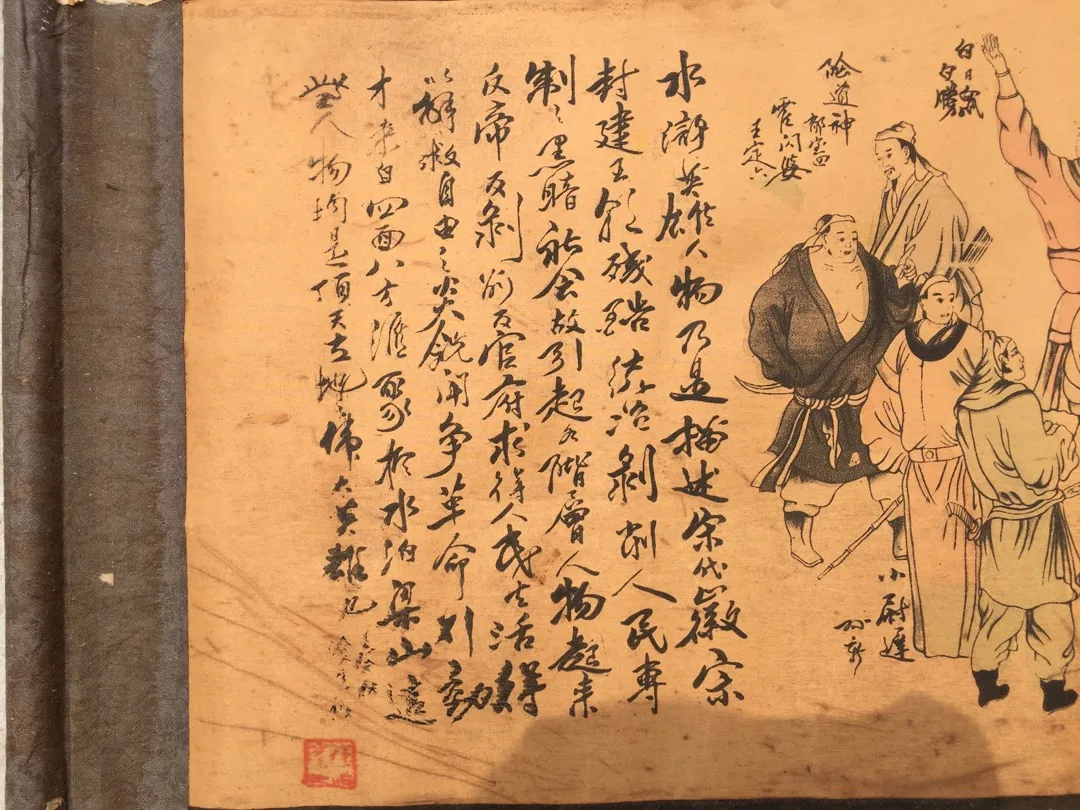 白日鼠
白勝
險道神
郁
霍閃婆
王定六
小尉遲
孫新
水滸英雄人物乃是描述宋代徽宗
封建王朝殘酷統治剝削人民專
制之黑暗社会故引起各階層人物起来
反帝反剝削反官府求得人民生活
以解救自由之火焰鬥争革命
才来自四面八方滙聚於水泊梁山這
些人物均是頂天立地偉大英雄